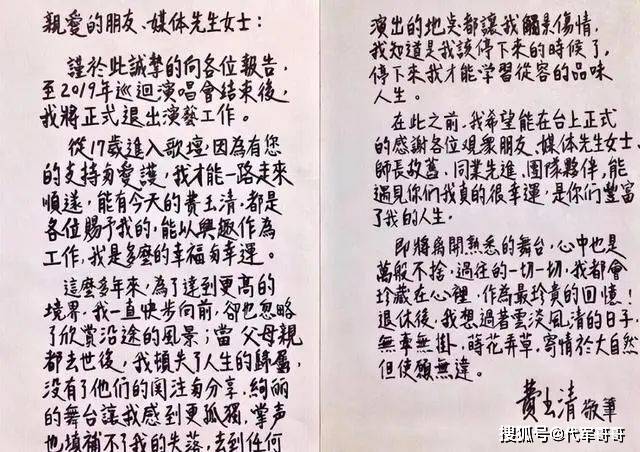 親愛的朋友、媒体先生女士：
謹於此誠摯的向各位報告，
至2019年巡迴演唱會結束後，
我將正式退出演藝工作。
從17歲進入歌壇，因為有您
的支持與愛護，我才能一路走來
順遂，能有今天的費玉清，都是
各位賜予我的，能以興趣作為
工作，我是多麼的幸福與幸運。
這麼多年來，為了達到更高的
境界，我一直快步向前，卻也忽略
了欣賞沿途的風景；當父母親
都去世後，我頓失了人生的歸屬，
沒有了他們的関注与分享，絢麗
的舞台讓我感到更孤獨，掌声
也填補不了我的失落，去到任何
演出的地点都讓我觸景傷情，
我知道是我該停下來的時候了，
停下來我才能学習從容的品味
人生。
在此之前，我希望能在台上正式
的感谢各位觀衆朋友、媒体先生女士、
師長故舊、同業先進、團隊夥伴，能
遇見你們我真的很幸運，是你們豐富
了我的人生。
即將離開熟悉的舞台，心中也是
萬般不捨，過往的一切一切，我都會
珍藏在心裡，作為最珍貴的回憶！
退休後，我想過著雲淡風清的日子，
無牽無掛，蒔花弄草，寄情於大自然
但使願無違。
費玉清 敬筆
搜狐号@代军哥哥